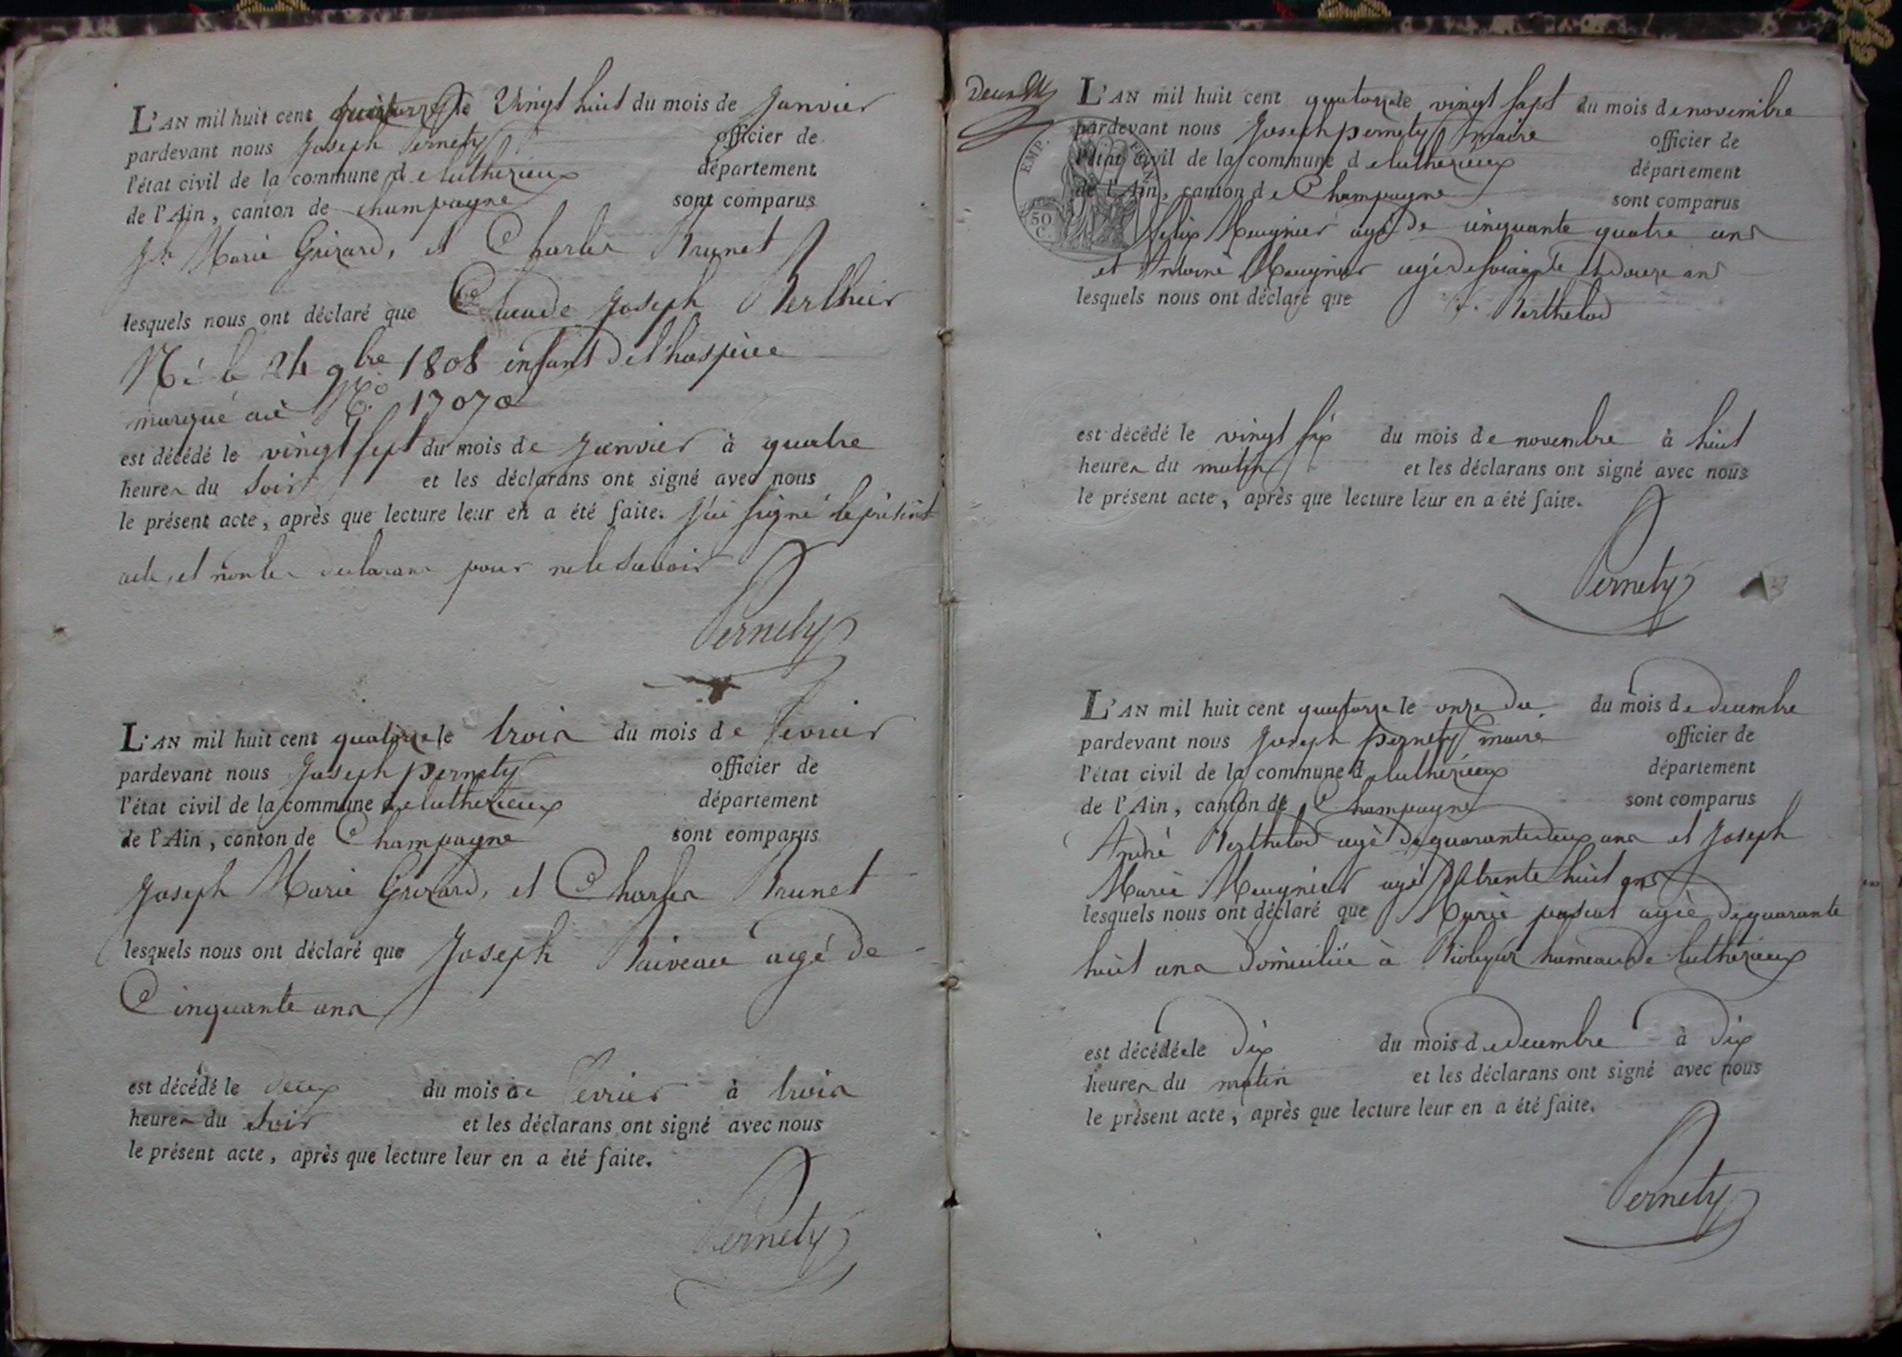 L'AN mil huit cent quatorze le Vingt huit du mois de Janvier
pardevant nous Joseph Pernety officier de
l'état civil de la commune de luthezieux département
de l'Ain, canton de champagne sont comparus
Jh Marie Grizard, et Charles Brunet
lesquels nous ont déclaré que Claude Joseph Berthier
Né le 24 9bre 1808 enfant de l'hospice
marqué au No. 17070
est décédé le vingt sept du mois de Janvier à quatre
heures du soir et les déclarans ont signé avec nous
le présent acte, après que lecture leur en a été faite. J'ai signé le présent
acte, et non les declarans pour ne le savoir
Pernety
L'AN mil huit cent quatorze le trois du mois de fevrier
pardevant nous Joseph pernety officier de
l'état civil de la commune de luthezieux département
de l'Ain, canton de Champagne sont comparus
Joseph Marie Grizard, et Charles Brunet
lesquels nous ont déclaré que Joseph agé de
Cinquante ans
est décédé le deux du mois de fevrier à trois
heures du soir et les déclarans ont signé avec nous
le présent acte, après que lecture leur en a été faite.
Pernety
L'AN mil huit cent quatorze le vingt sapt du mois de novembre
pardevant nous Joseph pernety maire officier de
l'état civil de la commune de luthezieux département
de l'Ain, canton de Champagne sont comparus
EMP.
50
C.
felix Meugnier agé de cinquante quatre ans
et Antoine Meugnier agé de soixante et douze ans
lesquels nous ont déclaré que Berthelod
est décédé le vingt six du mois de novembre à huit
heures du matin et les déclarans ont signé avec nous
le présent acte, après que lecture leur en a été faite.
Pernety
L'AN mil huit cent quatorze le onze du du mois de decembre
pardevant nous Joseph pernety maire officier de
l'état civil de la commune de luthezieux département
de l'Ain, canton de Champagne sont comparus
André Berthelod agé de quarante deux ans et Joseph
Marie Meugnier agé de trente huit ans
lesquels nous ont déclaré que Marie agée de quarante
huit ans domiciliée à hameau de luthezieux
est décédée le dix du mois de decembre à dix
heures du matin et les déclarans ont signé avec nous
le présent acte, après que lecture leur en a été faite.
Pernety